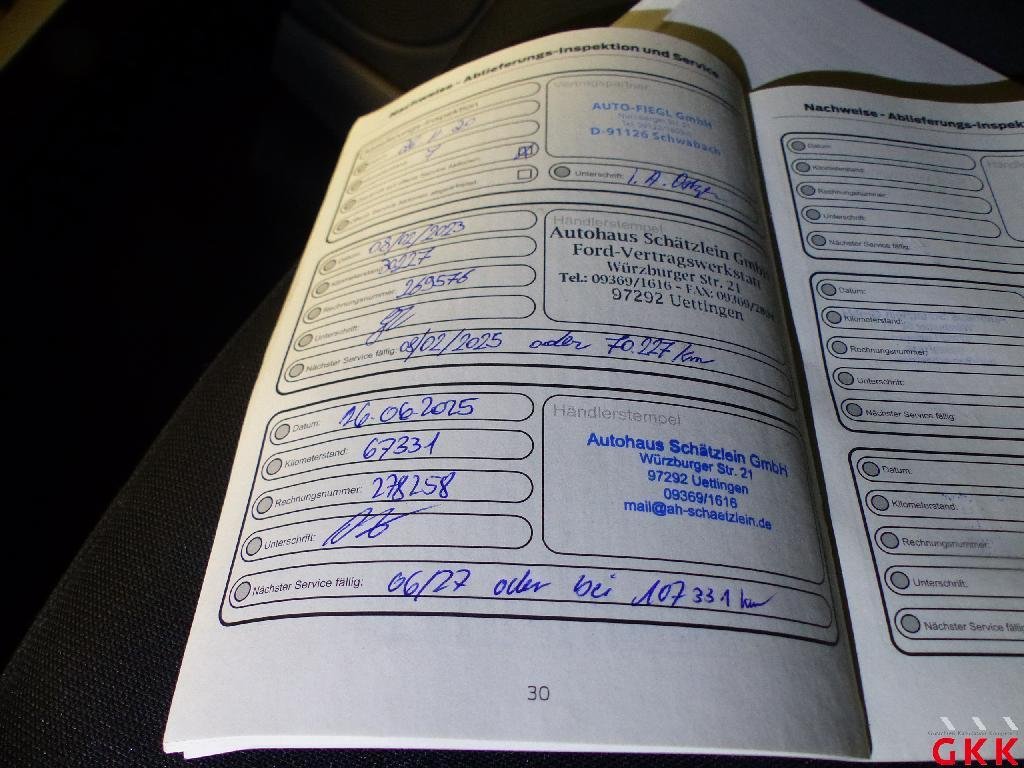 Nachweise - Ablieferungs-Inspektion und Service
Vertragspartner
AUTO-FIEGL GmbH
D-91126 Schwabach
Unterschrift:
Datum:
08/02/2023
30227
Rechnungsnummer:
269576
Unterschrift:
Händlerstempel
Autohaus Schätzlein GmbH
Ford-Vertragswerkstatt
Würzburger Str. 21
Tel.: 09369/1616 - FAX: 09369/
97292 Uettingen
Nächster Service fällig: 08/02/2025 oder 70.227 km
Datum: 26-06-2025
Kilometerstand: 67331
Rechnungsnummer: 278258
Unterschrift:
Händlerstempel
Autohaus Schätzlein GmbH
Würzburger Str. 21
97292 Uettingen
09369/1616
mail@ah-schaetzlein.de
Nächster Service fällig: 06/27 oder bei 107331 km
30
Nachweise - Ablieferungs-Inspek
Datum:
Kilometerstand:
Rechnungsnummer:
Unterschrift:
Nächster Service fällig:
Datum:
Kilometerstand:
Rechnungsnummer:
Unterschrift:
Nächster Service fällig:
Datum:
Kilometerstand:
Rechnungsnummer:
Unterschrift:
Nächster Service fällig
GKK